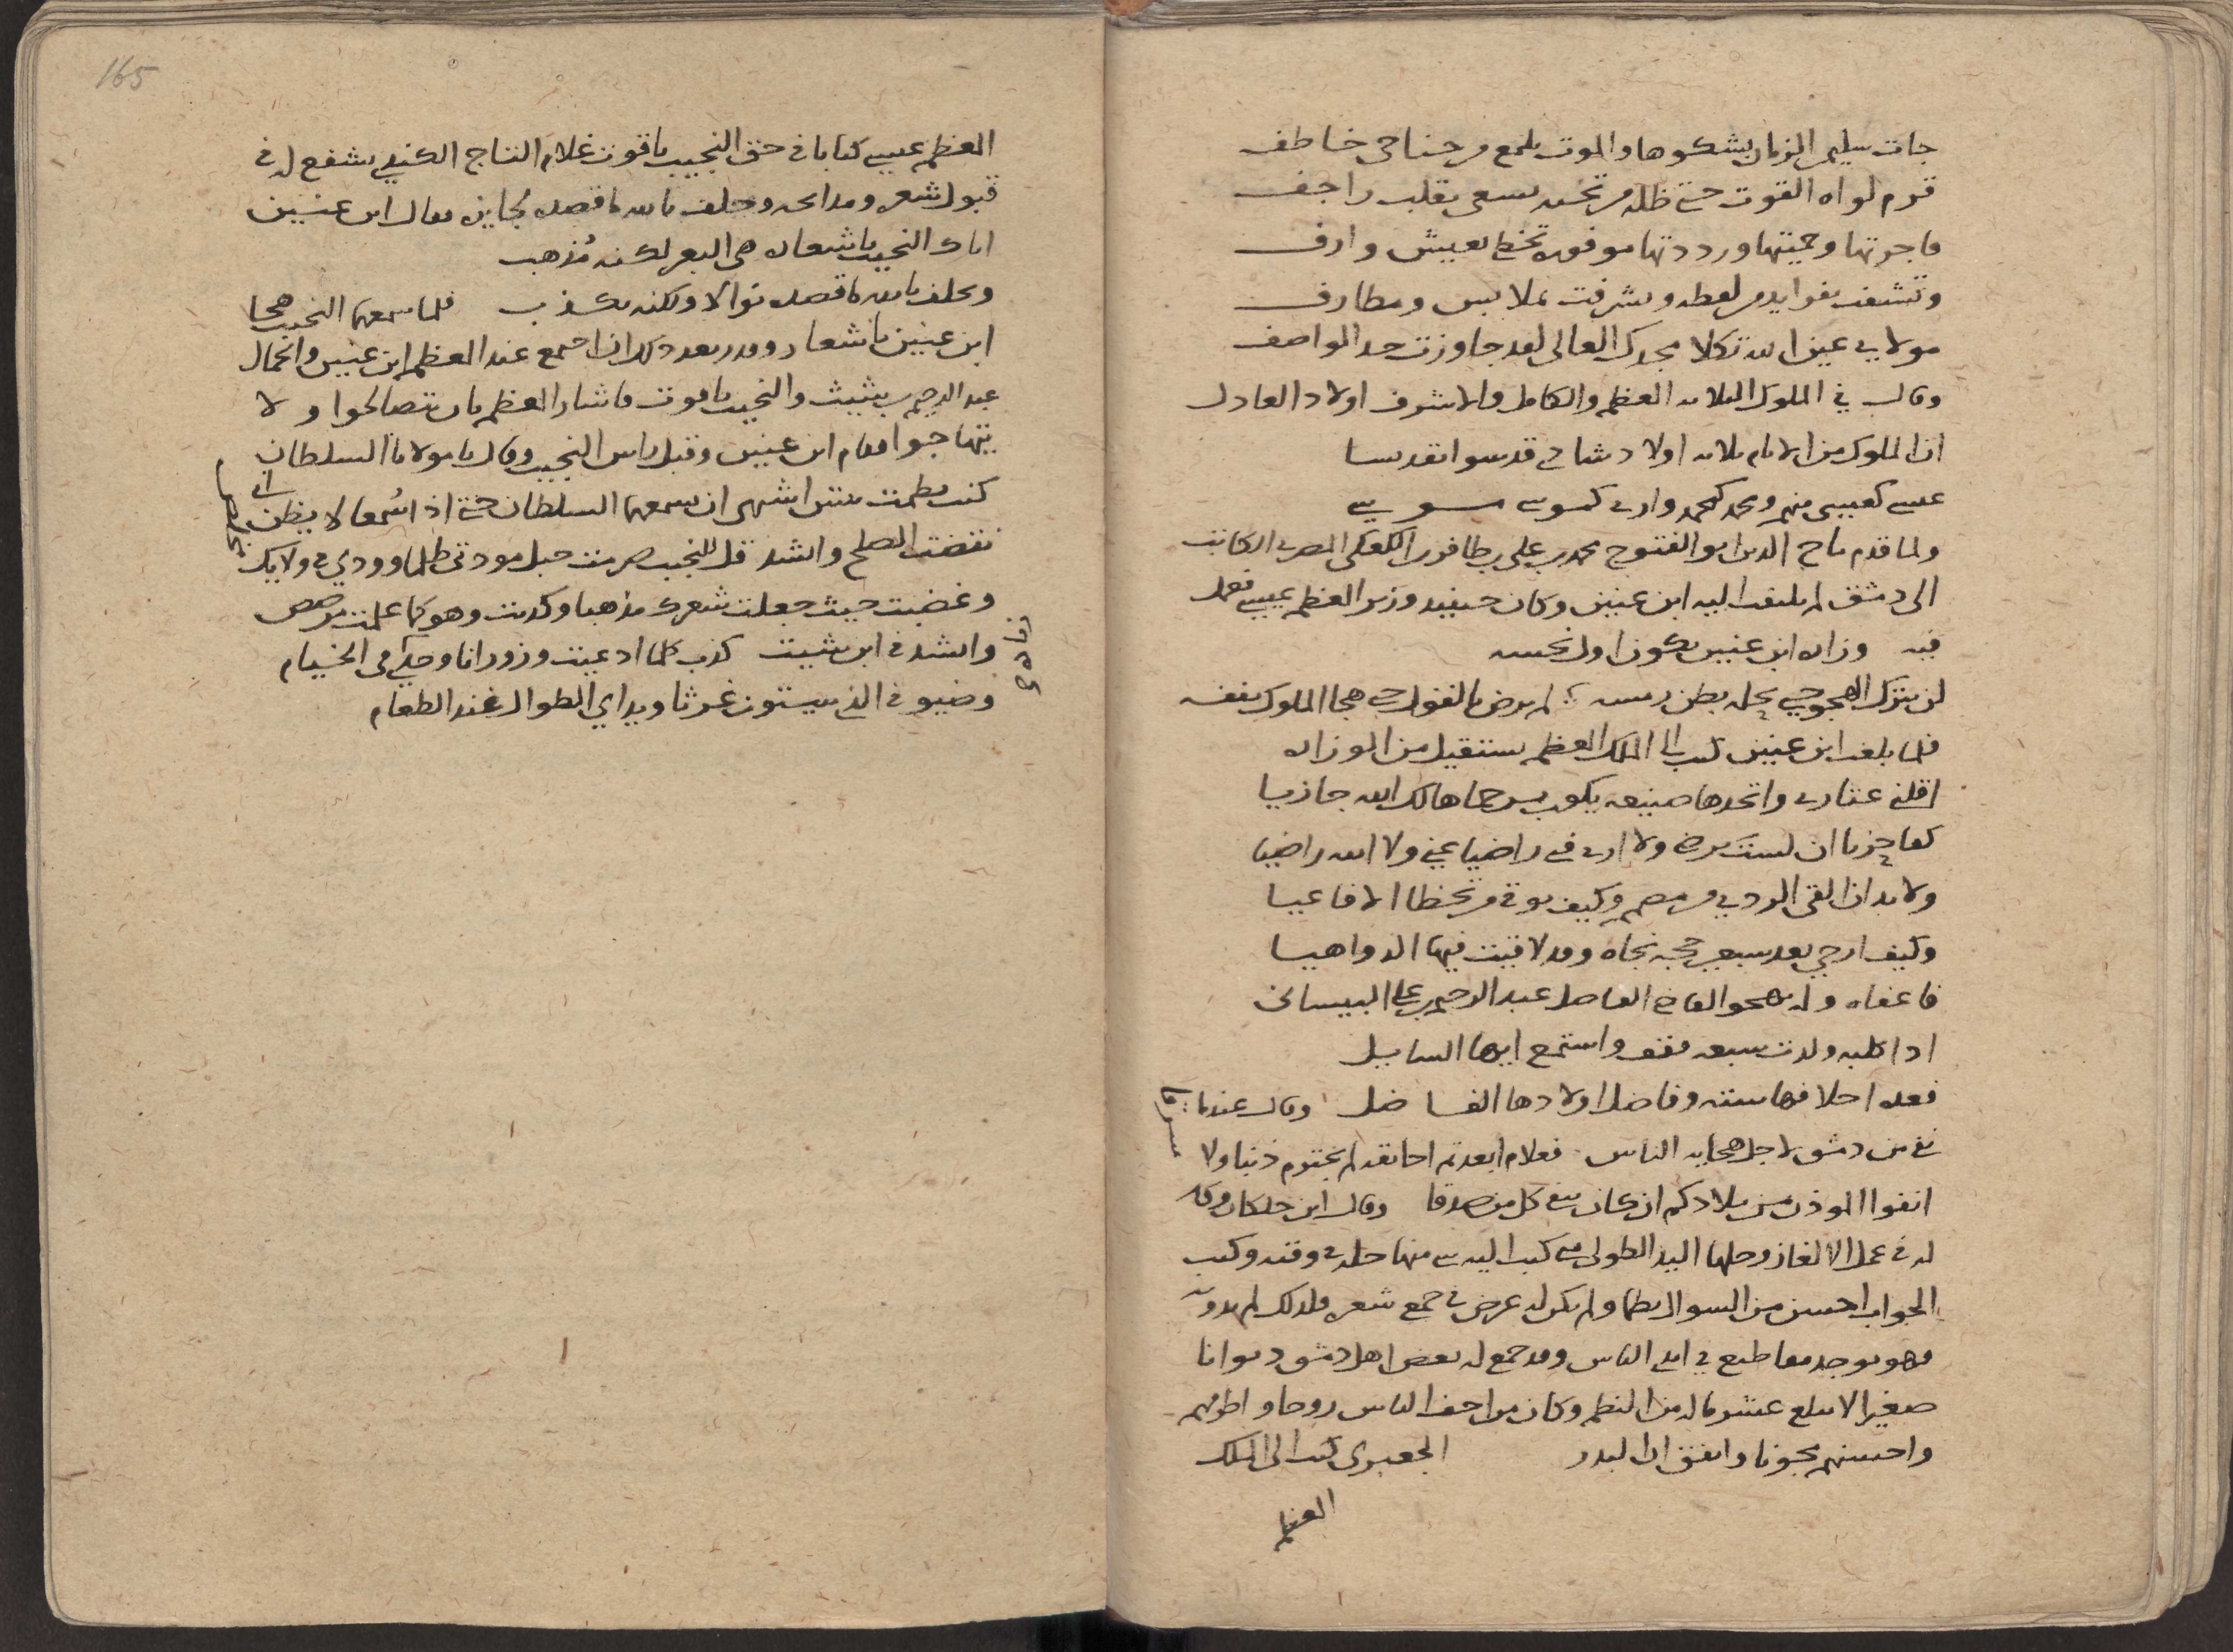 جات سليمن الزمان بشكوها والموت يلمع من جناحي خاطف
قرم لواه القوت حتى ظله من تحته يسعى بقلب راجف
فاجرتها وحميتها ورددتها موفوره تخطى بعيش وارف
وتشنفت بفرايد من لفظه وتشرفت بملابس ومطارف
مولاي عين الله تكلا مجدك العالي لقد جاوزت حد الواصف
وقال في الملوك الثلاثه المعظم والكامل والاشرف اولاد العادل
ان الملوك من الانام ثلاثه اولاد شادي قدسوا تقديسا
عيسى كعيسى منهم ومحمد كمحمد وارى كموسى موسى
ولما قدم تاج الدين ابو الفتوح محمد بن علي المصري الكاتب
الى دمشق لم يلتفت اليه ابن عنين وكان حينئذ وزير المعظم عيسى فعمل
فيه وزاره ابن عنين تكون اول نحسه
لن يترك الهجو حتى يحل بطن رمسه لم يرض بالقول حتى هجا الملوك بنفسه
فلما بلغت ابن عنين كتب الى الملك المعظم يستقيل من الوزاره
اقلني عثاري واتخذها صنيعه يكون برحماها لك الله جازيا
كفا حزنا ان لست ترضى ولا ارى فتى راضيا عني ولا الله راضيا
ولا بد ان القى الردى وكيف يوقى من تخطا الافاعيا
وكيف ارجي بعد سبعين حجه نجاه وقد لاقيت فيها الدواهيا
فاعفاه وله يهجو القاضي الفاضل عبد الرحيم بن علي البيساني
اذا كلبه ولدت سبعه فقف واستمع ايها السايل
فعده اخلافها سته وفاضل اولادها الفاضل وقال عندما
نفي من دمشق لاجل هجايه الناس فعلام ابعدتم اخا ثقه لم يجترم ذنبا ولا سرقا
انفوا الموذن من بلادكم ان كان ينفى كل من صدقا وقال ابن خلكان وكان
له في عمل الالغاز وحلها اليد الطولى متى كتب اليه شي منها حله في وقته وكتب
الجواب احسن من السوال نظما ولم يكن له غرض في جمع شعره فلذلك لم يدونه
فهو يوجد مقاطيع في ايدي الناس وقد جمع له بعض اهل دمشق ديوانا
صغيرا لا يبلغ عشر ما له من النظم وكان من اخف الناس روحا واظرفهم
واحسنهم مجونا واتفق ان البدر الجعبري كتب الى الملك
المعظم
165
المعظم عيسى كتابا في حق النجيب ياقوت غلام التاج الكندي يشفع له في
قبول شعره ومدايحه وحلف بالله ما قصده يجايزه فقال ابن عنين
اتاك النجيب باشعاره هي البعر لكنه مذهب
ويحلف بالله ما قصده نوالا ولكنه يكذب فلما سمعها النجيب هجا
ابن عنين باشعار وقدر بعد ذلك ان اجتمع عند المعظم ابن عنين والجمال
عبد الرحيم بن شيث والنجيب ياقوت فاشار المعظم بان يتصالحوا ولا
يتهاجوا فقام ابن عنين وقبل راس النجيب وقال يا مولانا السلطان
كنت نظمت بيتين اشتهي ان يسمعها السلطان حتى اذا سمعا لا يظن اني
نقضت الصلح وانشد قل للنجيب صرمت حبل مودتي ظلما وودي في ولايك
وغضبت حيث جعلت شعرك مذهبا وكذبت وهو كما علمت مرصص
وانشد في ابن شيث كذب كلما ادعيت وزور انا وحدي في الخيام
وضيوفي الذي يبيتون غرثا ويداي الطوال عند الطعام